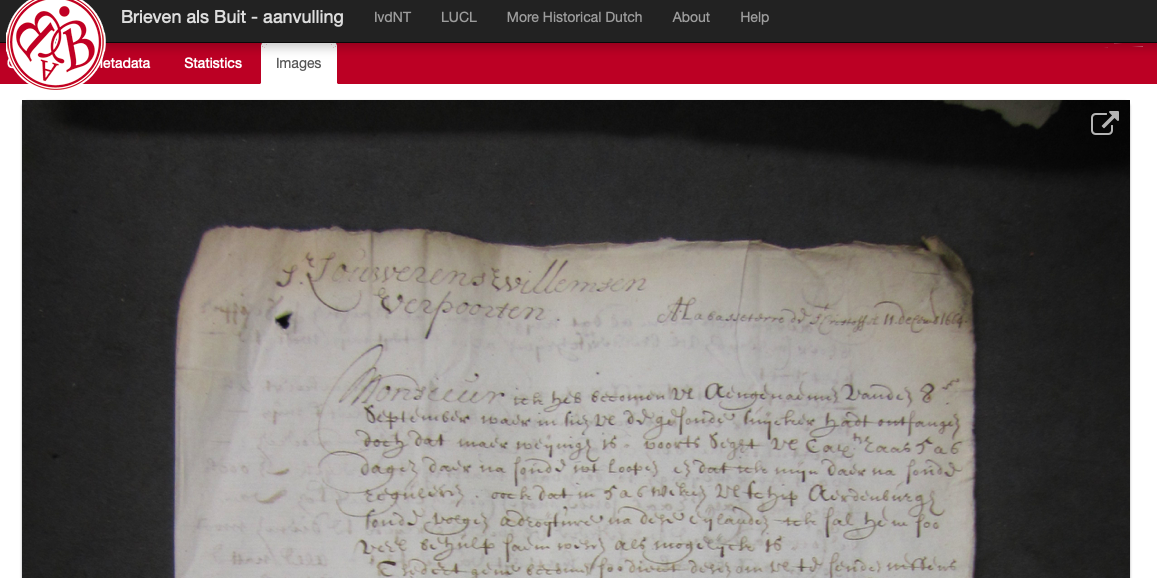 Brieven als Buit - aanvulling IvdNT LUCL More Historical Dutch About Help
etadata Statistics Images
Sr. Louwerens Willemsen
Verpoorten.
A La basseterre de St. Cristoffel 11 decemb 1664.
Monsieur ick heb becomen vl Aengenaeme vanden 8en
September waer in sie vl de gesonde suijcker hadt ontfangen
doch dat maer weijnigh is . voorts seght vl Capn Claas 5 a 6
dagen daer na soude wt loopen en dat ick mijn daer na soude
reguleren . oock dat in 5 a 6 weken vl schip Aerdenburgh
soude volgen adroijture na dese eijlanden ick sal hem soo
veel behulpsaem wesen als mogelijck is